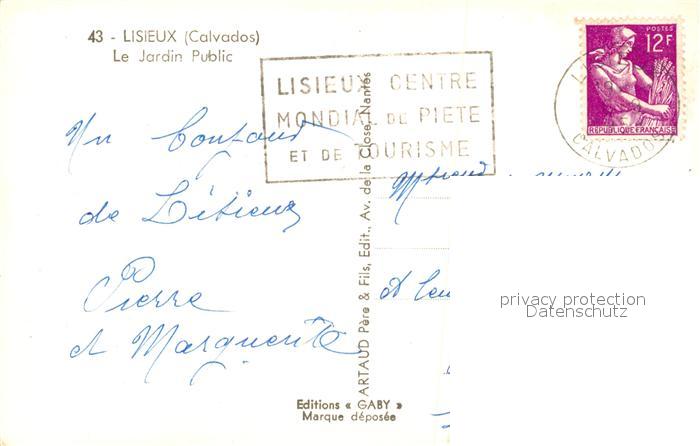 43 - LISIEUX (Calvados)
Le Jardin Public
POSTES
12F
REPUBLIQUE FRANÇAISE
CALVADOS
LISIEUX CENTRE
MONDIAL DE PIETE
ET DE TOURISME
Un Bonjour
de Lisieux
Pierre
et Marguerite
ARTAUD Père & Fils, Edit., Av. de la Close, Nantes
privacy protection
Datenschutz
Editions « GABY »
Marque déposée